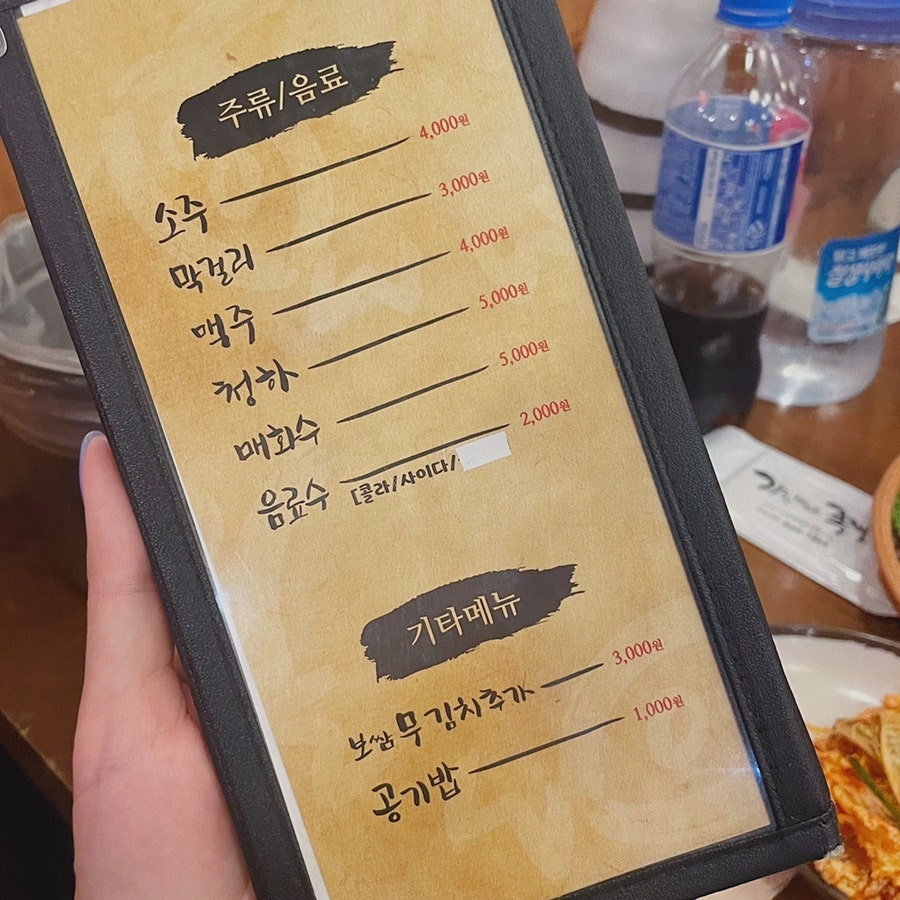 주류/음료
소주 4,000원
막걸리 3,000원
맥주 4,000원
청하 5,000원
매화수 5,000원
음료수 2,000원
[콜라/사이다/
기타메뉴
보쌈무김치추가 3,000원
공기밥 1,000원